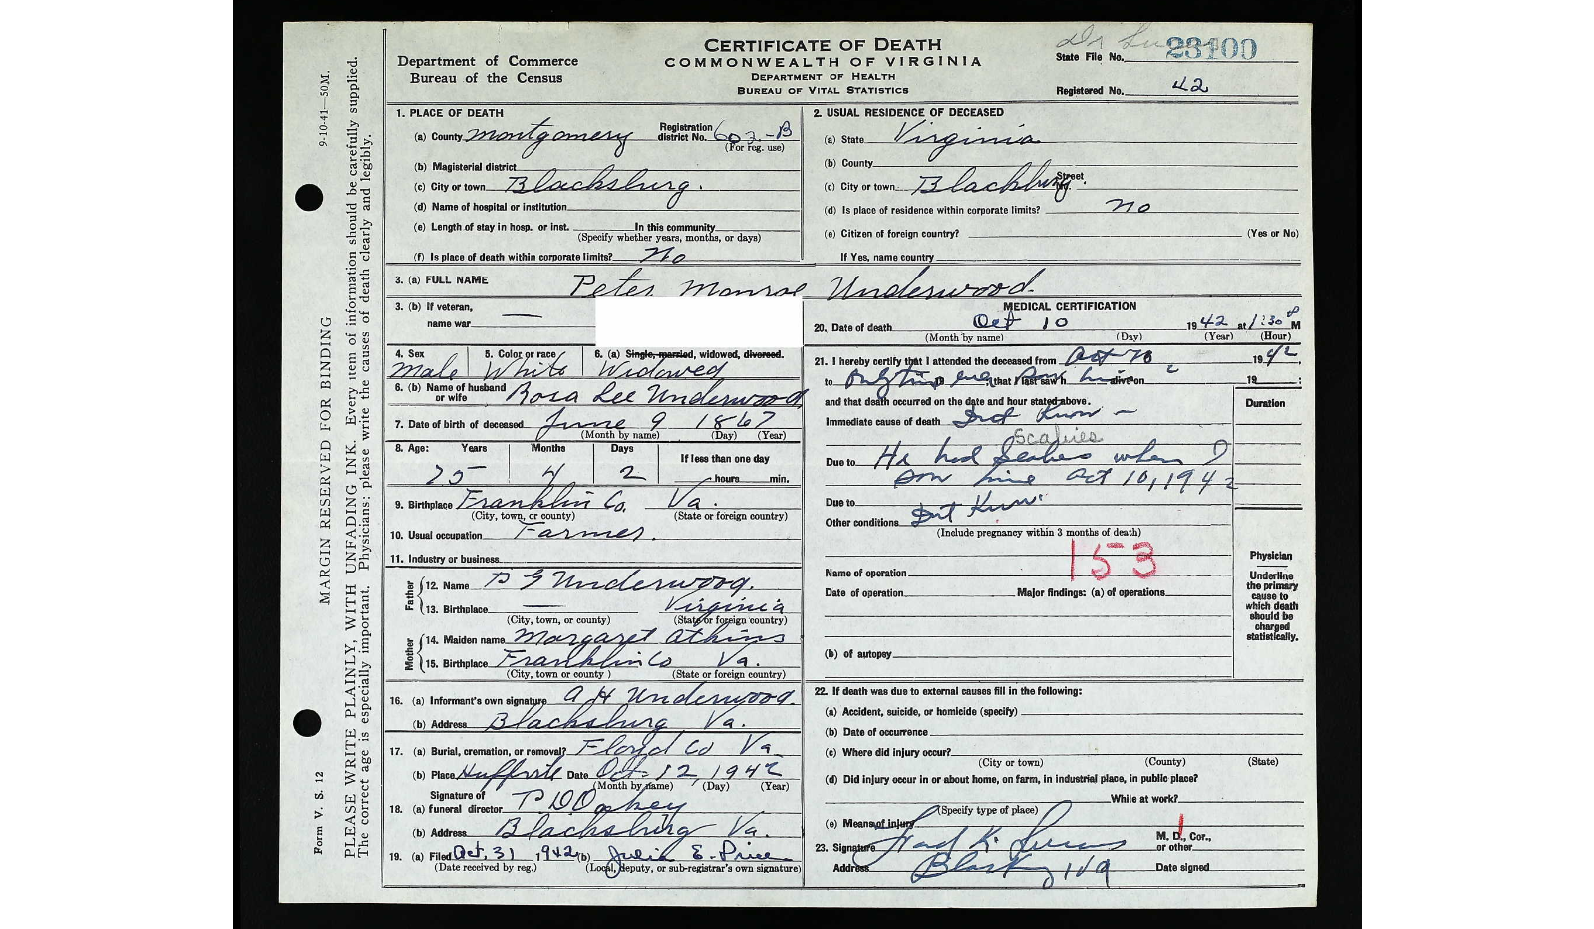 CERTIFICATE OF DEATH
COMMONWEALTH OF VIRGINIA
DEPARTMENT OF HEALTH
BUREAU OF VITAL STATISTICS
Department of Commerce
Bureau of the Census
Dr
State File No. 23100
Registered No. 42
9-10-41—50M.
MARGIN RESERVED FOR BINDING
Form V. S. 12
PLEASE WRITE PLAINLY, WITH UNFADING INK. Every item of information should be carefully supplied.
The correct age is especially important. Physicians: please write the causes of death clearly and legibly.
1. PLACE OF DEATH
(a) County Montgomery Registration district No. 603-B
(For reg. use)
(b) Magisterial district
(c) City or town Blacksburg.
(d) Name of hospital or institution
(e) Length of stay in hosp. or inst. In this community
(Specify whether years, months, or days)
(f) Is place of death within corporate limits? No
2. USUAL RESIDENCE OF DECEASED
(a) State Virginia
(b) County
(c) City or town Blacksburg Street
(d) Is place of residence within corporate limits? No
(e) Citizen of foreign country? (Yes or No)
If Yes, name country
3. (a) FULL NAME Peter Monroe Underwood.
3. (b) If veteran,
name war —
4. Sex 5. Color or race 6. (a) Single, married, widowed, divorced.
Male White Widowed
6. (b) Name of husband or wife Rosa Lee Underwood
7. Date of birth of deceased June 9 1867
(Month by name) (Day) (Year)
8. Age: Years Months Days If less than one day
75 4 2 hours min.
9. Birthplace Franklin Co. Va.
(City, town, or county) (State or foreign country)
10. Usual occupation Farmer.
11. Industry or business
Father
12. Name P G Underwood.
13. Birthplace — Virginia
(City, town, or county) (State or foreign country)
Mother
14. Maiden name Margaret Atkins
15. Birthplace Franklin Co Va.
(City, town or county ) (State or foreign country)
16. (a) Informant's own signature A H Underwood.
(b) Address Blacksburg Va.
17. (a) Burial, cremation, or removal? Floyd Co Va
(b) Place Date Oct. 12, 1942
(Month by name) (Day) (Year)
18. (a) Signature of funeral director P D Oakey
(b) Address Blacksburg Va.
19. (a) Filed Oct, 31 1942 (b) Julia E. Price
(Date received by reg.) (Local, deputy, or sub-registrar's own signature)
MEDICAL CERTIFICATION
20. Date of death Oct 10 1942 at 1:30 P M
(Month by name) (Day) (Year) (Hour)
21. I hereby certify that I attended the deceased from Oct 10 1942
to Only time ever saw him that I last saw h alive on 19 ;
and that death occurred on the date and hour stated above.
Duration
Immediate cause of death Dont Know –
Scabies
Due to He had Scabies when I
saw him Oct 10, 1942
Due to
Other conditions Dont Know
(Include pregnancy within 3 months of death)
153
Name of operation
Date of operation Major findings: (a) of operations
(b) of autopsy
Physician
Underline the primary cause to which death should be charged statistically.
22. If death was due to external causes fill in the following:
(a) Accident, suicide, or homicide (specify)
(b) Date of occurrence
(c) Where did injury occur?
(City or town) (County) (State)
(d) Did injury occur in or about home, on farm, in industrial place, in public place?
While at work?
(Specify type of place)
(e) Means of injury
23. Signature M. D., Cor., or other
Address Date signed